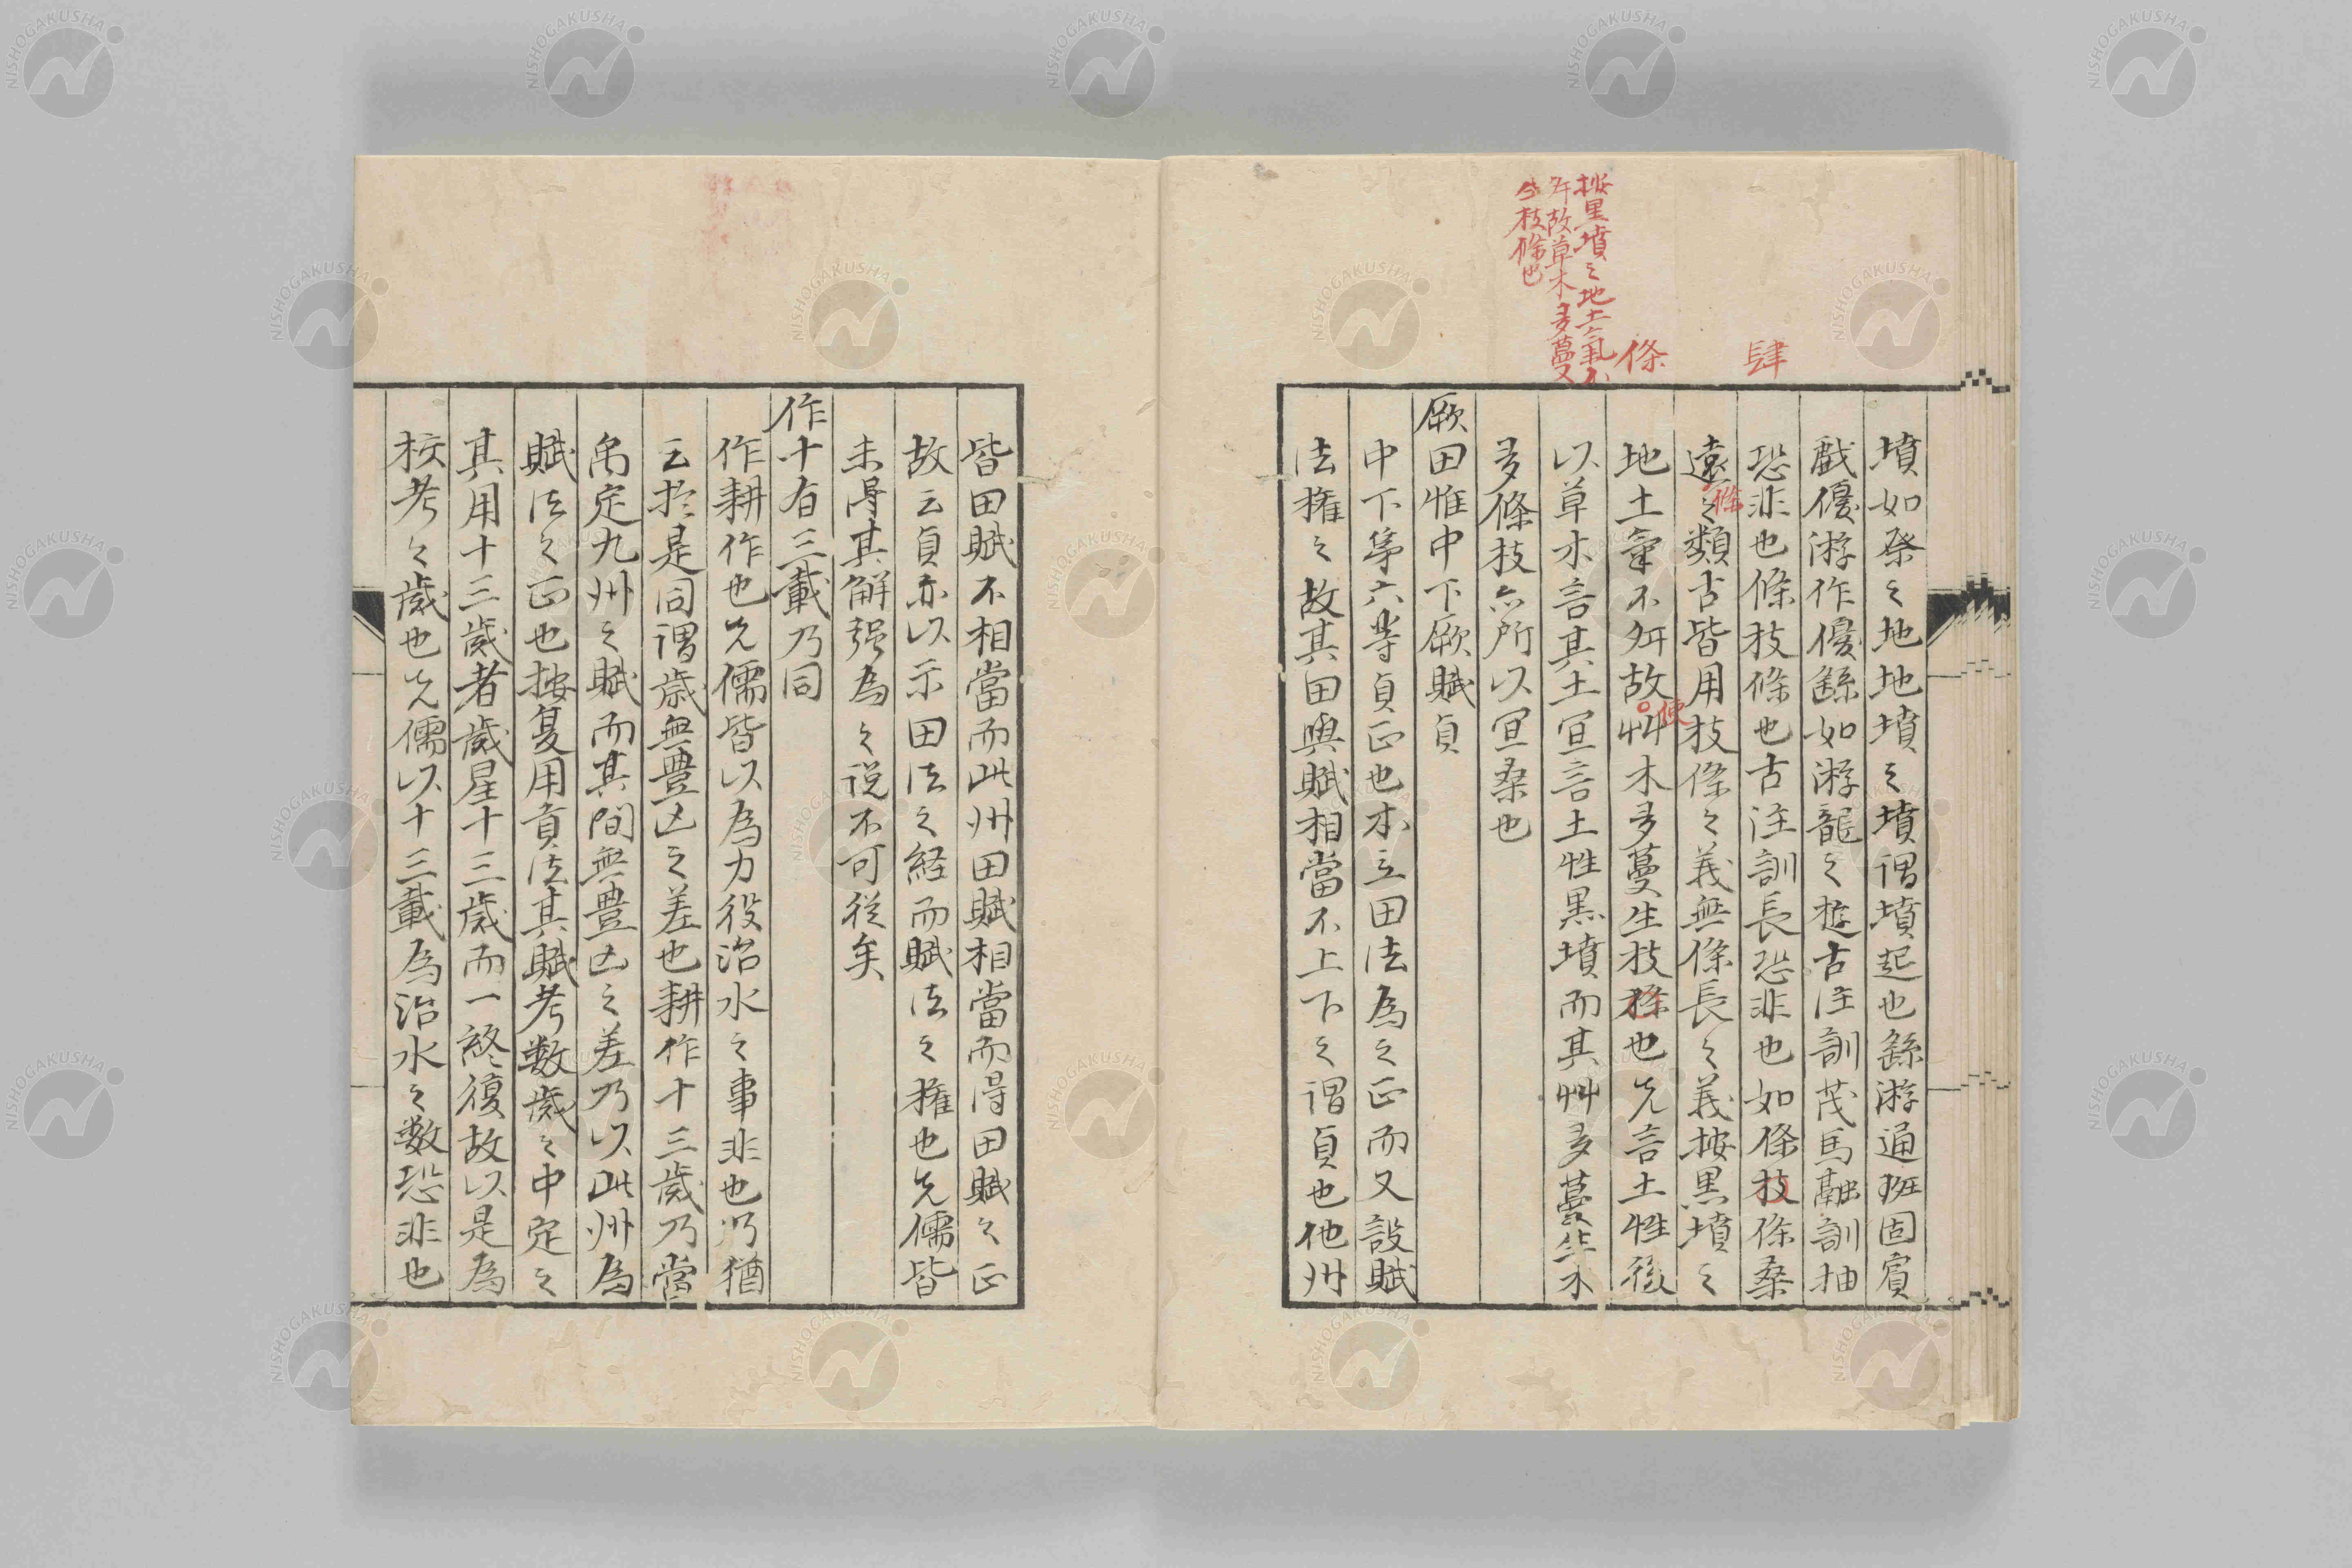 按黒墳之地土氣不
刋故草木多蔓又
生枝條也
條
肆
墳如祭之地地墳之墳謂墳起也繇游通班固賓
戯優游作優繇如游龍之遊古注訓茂馬融訓抽
恐非也條枝條也古注訓長恐非也如條枝條桑
遠之類古皆用枝條之義無條長之義按黒墳之
條
地土氣不刋故艸木多蔓生枝條也先言土性後
使
以草木言其土宜言土性黒墳而其艸多蔓生木
多條枝亦所以宜桑也
厥田惟中下厥賦貞
中下第六等貞正也本立田法為之正而又設賦
法權之故其田與賦相當不上下之謂貞也他州
皆田賦不相當而此州田賦相當而得田賦之正
故云貞亦以示田法之経而賦法之權也先儒皆
未得其解強為之説不可從矣
作十有三載乃同
作耕作也先儒皆以為力役治水之事非也乃猶
云於是同謂歳無豊凶之差也耕作十三歳乃當
禹定九州之賦而其間無豊凶之差乃以此州為
賦法之正也按夏用貢法其賦考数歳之中定之
其用十三歳者歳星十三歳而一終復故以是為
校考之歳也先儒以十三載為治水之数恐非也
NISHOGAKUSHA